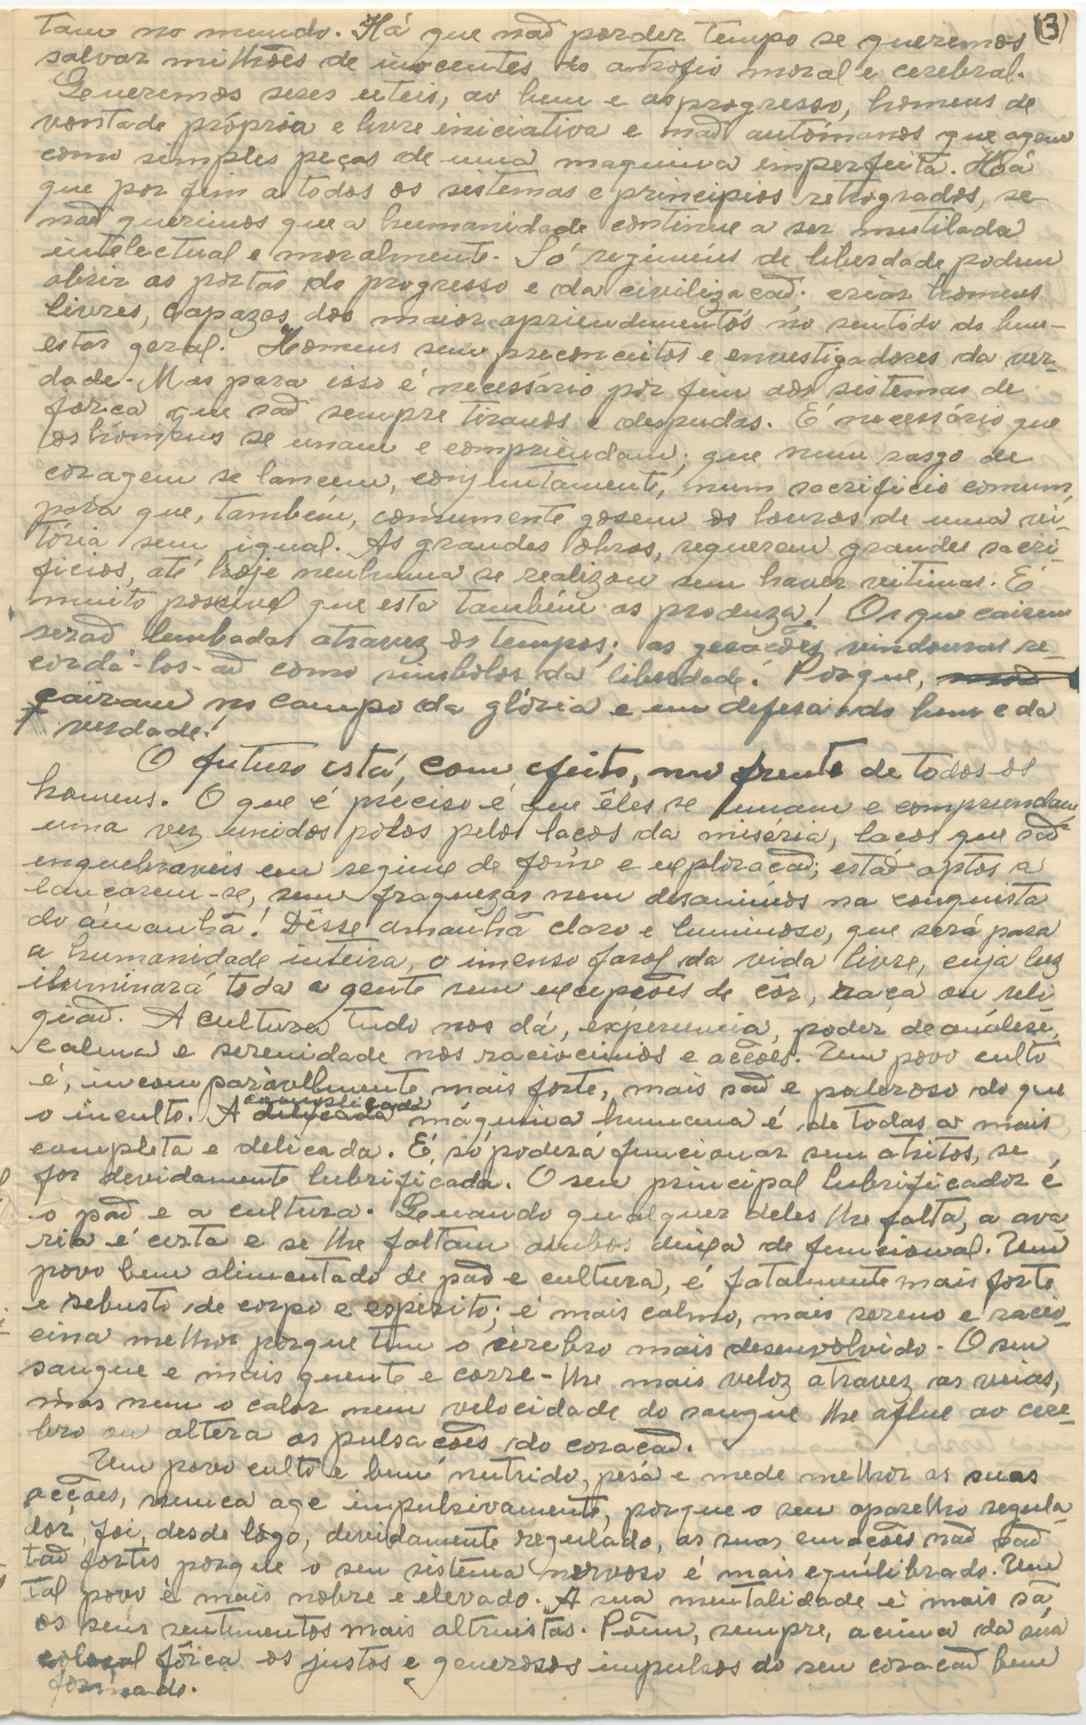 (3)
tam no mundo. Há que não perder tempo se queremos
salvar milhões de inocentes do atrofio moral e cerebral.
Queremos seres uteis, ao bem e ao progresso, homens de
vontade própria e livre iniciativa e não autómanos que agem
como simples peças de uma maquina imperfeita. Há
que por fim a todos os sistemas e principios retrogrados, se
não querimos que a humanidade continue a ser mutilada
intelectual e moralmente. Só regimens de liberdade podem
abrir as portas do progresso e da civilização: criar homens
livres, capazes dos maior apriendimentos no sentido do bem-
estar geral. Homens sem preconceitos e envestigadores da ver-
dade. Mas para isso é necessário pôr fim aos sistemas de
força que são sempre tiranos e despudas. É necessário que
os homens se unam e compriendam; que num rasgo de
coragem se lancem, conjuntamente, num sacrificio comum,
para que, também, comumente gosem os louros de uma vi-
tória sem igual. As grandes obras, requerem grandes sacri-
ficios, até hoje nenhuma se realizou sem haver vitimas. É
muito possivel que esta também as produza! Os que cairem
serão lembados atravez os tempos; as gerações vindouras re-
cordá-los-ão como simbolos da liberdade! Porque,
cairam no campo da glória e em defesa do bem e da
verdade!
O futuro está, com efeito, na frente de todos os
homens. O que é préciso é que êles se unam e compriendam
uma vez unidos pelos laços da miséria, laços que são
enquebraveis em regime de fome e exploração; estão aptos a
lançarem-se, sem fraquezas nem desanimos na conquista
do ámanhã! Dêsse amanhã claro e luminoso, que será para
a humanidade inteira, o imenso farol da vida livre, cuja luz
iluminará toda a gente sem excepções de côr, raça ou reli
gião. A cultura tudo nos dá, experiencia, poder de análise,
calma e serenidade nos raciocinios e acções. Um povo culto
é, incomparávelmente mais forte, mais são e poderoso do que
o inculto. A complicada máquina humana é de todas a mais
completa e delicada. É, só poderá funcionar sem atritos, se
for devidamente lubrificada. O seu principal lubrificador é
o pão e a cultura. Quando qualquer deles lhe falta, a ava
ria é certa e se lhe faltam ambos deixa de funcional. Um
povo bem alimentado de pão e cultura, é fatalmente mais forte
e rebusto de corpo e espirito; é mais calmo, mais sereno e racio-
cina melhor porque tem o cérebro mais desenvolvido. O seu
sangue e mais quente e corre-lhe mais veloz atravez as veias,
mas nem o calor nem velocidade do sangue lhe aflue ao cere-
bro ou altera as pulsações do coração.
Um povo culto e bem nutrido, pesa e mede melhor as suas
acções, nunca age impulsivamente, porque o seu aparelho regula-
dor, foi, desde lôgo, devidamente regulado, as suas emoções não são
tão fortes porque o seu sistema nervoso é mais equilibrado. Um
tal povo é mais nobre e elevado. A sua mentalidade é mais sã,
os seus sentimentos mais altruistas. Põem, sempre, acima da sua
colosal fôrça os justos e generosos impulsos do seu coração bem
formado.